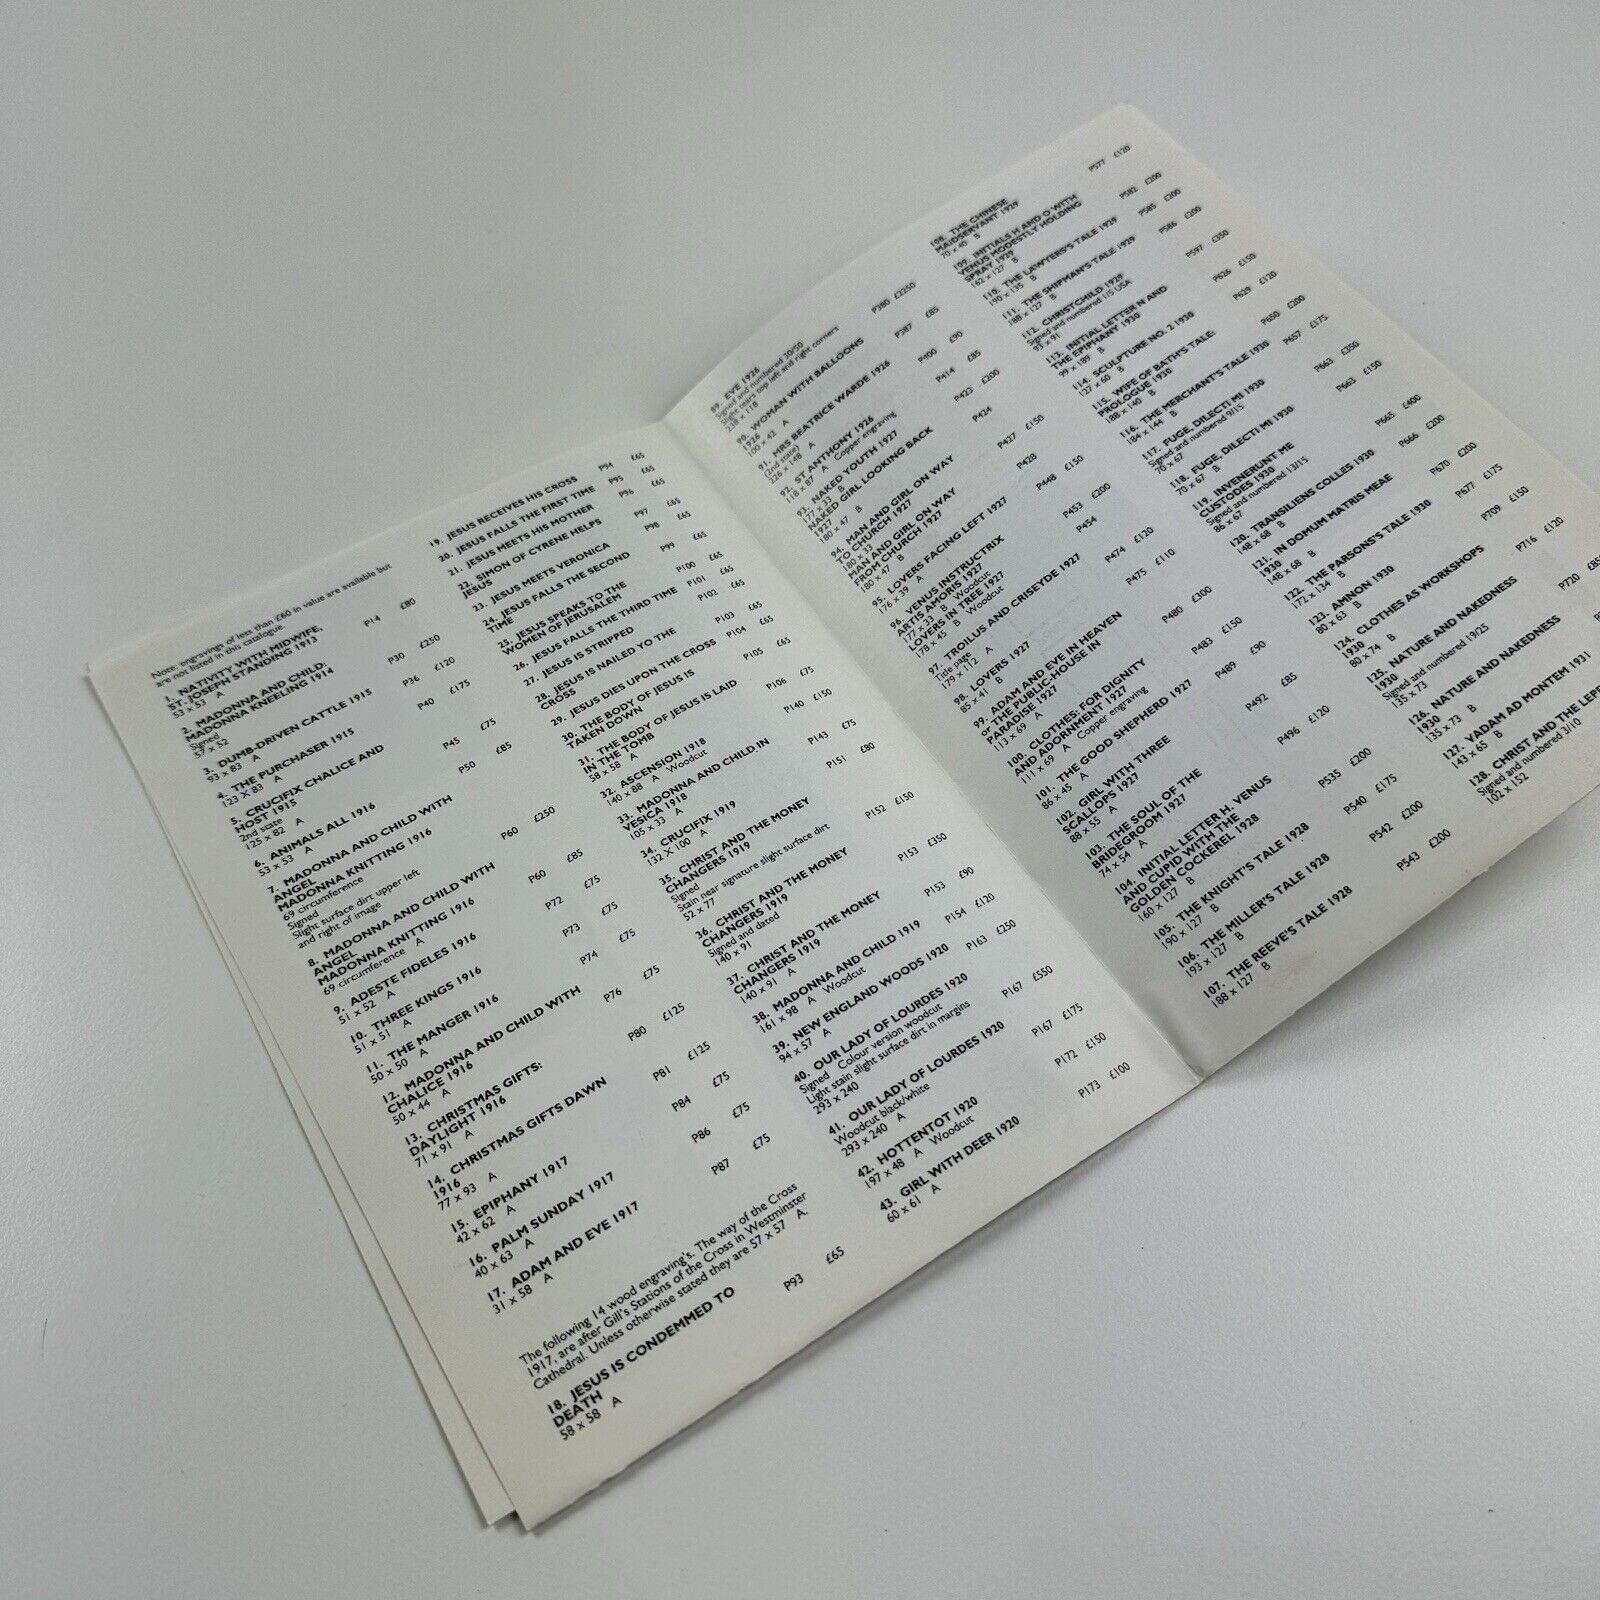 Note: engravings of less than £60 in value are available but
are not listed in this catalogue.
1. NATIVITY WITH MIDWIFE, P14 £80
ST. JOSEPH STANDING 1913
53 x 53 A
2. MADONNA AND CHILD: P30 £250
MADONNA KNEELING 1914
Signed
57 x 52
3. DUMB-DRIVEN CATTLE 1915 P36 £120
93 x 83 A
4. THE PURCHASER 1915 P40 £175
123 X 83 A
5. CRUCIFIX CHALICE AND P45 £75
HOST 1915
2nd state
125 x 82 A
6. ANIMALS ALL 1916 P50 £85
53 x 53 A
7. MADONNA AND CHILD WITH P60 £250
ANGEL
MADONNA KNITTING 1916
69 circumference
Signed
Slight surface dirt upper left
and right of image
8. MADONNA AND CHILD WITH P60 £85
ANGEL
MADONNA KNITTING 1916
69 circumference A
9. ADESTE FIDELES 1916 P72 £75
51 x 52 A
10. THREE KINGS 1916 P73 £75
51 x 51 A
11. THE MANGER 1916 P74 £75
50 x 50 A
12. MADONNA AND CHILD WITH P76 £75
CHALICE 1916
50 x 44 A
13. CHRISTMAS GIFTS: P80 £125
DAYLIGHT 1916
71 x 91 A
14. CHRISTMAS GIFTS DAWN P81 £125
1916
77 x 93 A
15. EPIPHANY 1917 P84 £75
42 x 62 A
16. PALM SUNDAY 1917 P86 £75
40 x 63 A
17. ADAM AND EVE 1917 P87 £75
31 x 58 A
The following 14 wood engraving's. The way of the Cross
1917, are after Gill's Stations of the Cross in Westminster
Cathedral. Unless otherwise stated they are 57 x 57 A.
18. JESUS IS CONDEMMED TO P93 £65
DEATH
58 x 58 A
19. JESUS RECEIVES HIS CROSS P94 £65
20. JESUS FALLS THE FIRST TIME P95 £65
21. JESUS MEETS HIS MOTHER P96 £65
22. SIMON OF CYRENE HELPS P97 £65
JESUS
23. JESUS MEETS VERONICA P98 £65
24. JESUS FALLS THE SECOND P99 £65
TIME
25. JESUS SPEAKS TO THE P100 £65
WOMEN OF JERUSALEM
26. JESUS FALLS THE THIRD TIME P101 £65
27. JESUS IS STRIPPED P102 £65
28. JESUS IS NAILED TO THE P103 £65
CROSS
29. JESUS DIES UPON THE CROSS P104 £65
30. THE BODY OF JESUS IS P105 £65
TAKEN DOWN
31. THE BODY OF JESUS IS LAID P106 £75
IN THE TOMB
58 x 58 A
32. ASCENSION 1918 P140 £150
140 x 88 A Woodcut
33. MADONNA AND CHILD IN P143 £75
VESICA 1918
105 x 33 A
34. CRUCIFIX 1919 P151 £80
132 X 100 A
35. CHRIST AND THE MONEY P152 £150
CHANGERS 1919
Signed
Stain near signature slight surface dirt
52 x 77
36. CHRIST AND THE MONEY P153 £350
CHANGERS 1919
Signed and dated
140 x 91
37. CHRIST AND THE MONEY P153 £90
CHANGERS 1919
140 x 91 A
38. MADONNA AND CHILD 1919 P154 £120
161 x 98 A Woodcut
39. NEW ENGLAND WOODS 1920 P163 £250
94 x 57 A
40. OUR LADY OF LOURDES 1920 P167 £550
Signed Colour version woodcut
Light stain slight surface dirt in margins
293 x 240
41. OUR LADY OF LOURDES 1920 P167 £175
Woodcut black/white
293 x 240 A
42. HOTTENTOT 1920 P172 £150
197 x 48 A Woodcut
43. GIRL WITH DEER 1920 P173 £100
60 x 61 A
89. EVE 1926 P380 £2250
Signed and numbered 30/50
Slight tears top left and right corners
238 x 118
90. WOMAN WITH BALLOONS P387 £85
1926
100 x 42 A
91. MRS BEATRICE WARDE 1926 P400 £90
(2nd state)
226 x 148 A
92. ST ANTHONY 1926 P414 £85
118 x 87 A Copper engraving
93. NAKED YOUTH 1927 P423 £200
177 x 33 B
NAKED GIRL LOOKING BACK P424
1927
180 x 47 B
94. MAN AND GIRL ON WAY P427 £150
TO CHURCH 1927
180 x 33
MAN AND GIRL ON WAY P428
FROM CHURCH 1927
180 x 47 B
95. LOVERS FACING LEFT 1927 P448 £150
176 x 39 A
96. VENUS INSTRUCTRIX P453 £200
ARTIS AMORIS 1927
177 x 33 B Woodcut
LOVERS IN TREE 1927 P454
178 x 45 B Woodcut
97. TROILUS AND CRISEYDE 1927 P474 £120
Title page
179 x 112 A
98. LOVERS 1927 P475 £110
85 x 41 B
99. ADAM AND EVE IN HEAVEN P480 £300
or THE PUBLIC-HOUSE IN
PARADISE 1927
113 x 69 A
100. CLOTHES: FOR DIGNITY P483 £150
AND ADORNMENT 1927
111 x 69 A Copper engraving
101. THE GOOD SHEPHERD 1927 P489 £90
86 x 45 A
102. GIRL WITH THREE P492 £85
SCALLOPS 1927
88 x 55 A
103. THE SOUL OF THE P496 £120
BRIDEGROOM 1927
74 x 54 A
104. INITIAL LETTER H. VENUS P535 £200
AND CUPID WITH THE
GOLDEN COCKEREL 1928
160 x 127 B
105. THE KNIGHT'S TALE 1928 P540 £175
190 x 127 B
106. THE MILLER'S TALE 1928 P542 £200
193 x 127 B
107. THE REEVE'S TALE 1928 P543 £200
188 x 127 B
108. THE CHINESE P577 £120
MAIDSERVANT 1929
70 x 40 B
109. INITIALS H AND O WITH P582 £200
VENUS MODESTLY HOLDING
SPRAY 1929
162 x 127 B
110. THE LAWYERS'S TALE 1929 P585 £200
190 x 135 B
111. THE SHIPMAN'S TALE 1929 P586 £200
188 x 127 B
112. CHRISTCHILD 1929 P597 £350
Signed and numbered 1/5 USA
93 x 91
113. INITIAL LETTER N AND P626 £150
THE EPIPHANY 1930
99 x 189 B
114. SCULPTURE NO. 2 1930 P629 £120
127 x 60 B
115. WIFE OF BATH'S TALE: P650 £200
PROLOGUE 1930
188 x 140 B
116. THE MERCHANT'S TALE 1930 P657 £175
184 x 144 B
117. FUGE, DILECTI MI 1930 P663 £350
Signed and numbered 9/15
70 x 67
118. FUGE, DILECTI MI 1930 P663 £150
70 x 67 B
119. INVENERUNT ME P665 £400
CUSTODES 1930
Signed and numbered 13/15
86 x 67
120. TRANSILIENS COLLES 1930 P666 £200
148 x 68 B
121. IN DOMUM MATRIS MEAE P670 £200
1930
148 x 68 B
122. THE PARSONS'S TALE 1930 P677 £175
172 x 134 B
123. AMNON 1930 P709 £150
80 x 63 B
124. CLOTHES AS WORKSHOPS P716 £120
1930
80 x 74 B
125. NATURE AND NAKEDNESS P720 £85
1930
Signed and numbered 19/25
135 x 73
126. NATURE AND NAKEDNESS
1930
135 x 73 B
127. VADAM AD MONTEM 1931
143 x 65 B
128. CHRIST AND THE
Signed and numbered 3/10
102 x 152